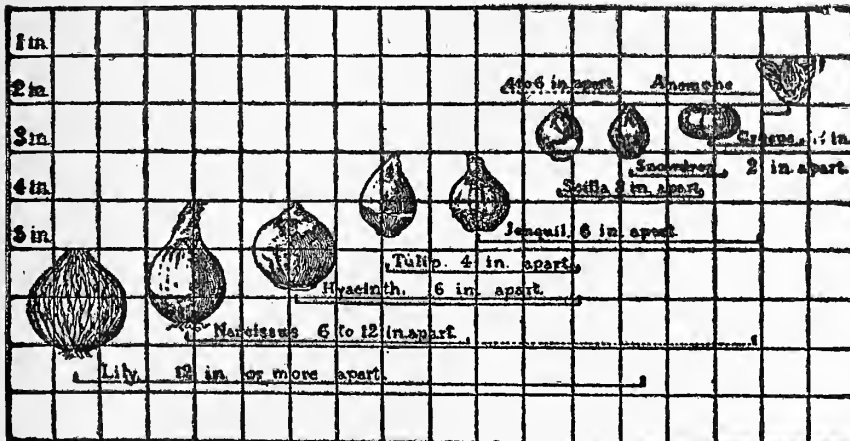 1 in.
2 in.
3 in.
4 in.
5 in.
4 to 6 in. apart Anemone
Crocus in.
Snowdrop 2 in. apart.
Scilla 3 in. apart
Jonquil. 6 in. apart
Tulip. 4 in. apart.
Hyacinth. 6 in. apart.
Narcissus 6 to 12 in. apart.
Lily. 12 in. or more apart.